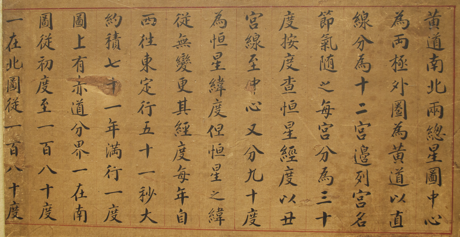 黃道南北兩總星圖中心
為兩極外圈為黃道以直
線分為十二宮邊列宮名
節氣隨之每宮分為三十
度按度查恒星經度以丑
宮線至中心又分九十度
為恒星緯度但恒星之緯
從無變更其經度每年自
西徃東定行五十一秒大
約積七十一年滿行一度
圖上有赤道分界一在南
圖從初度至一百八十度
一在北圖從一百八十度